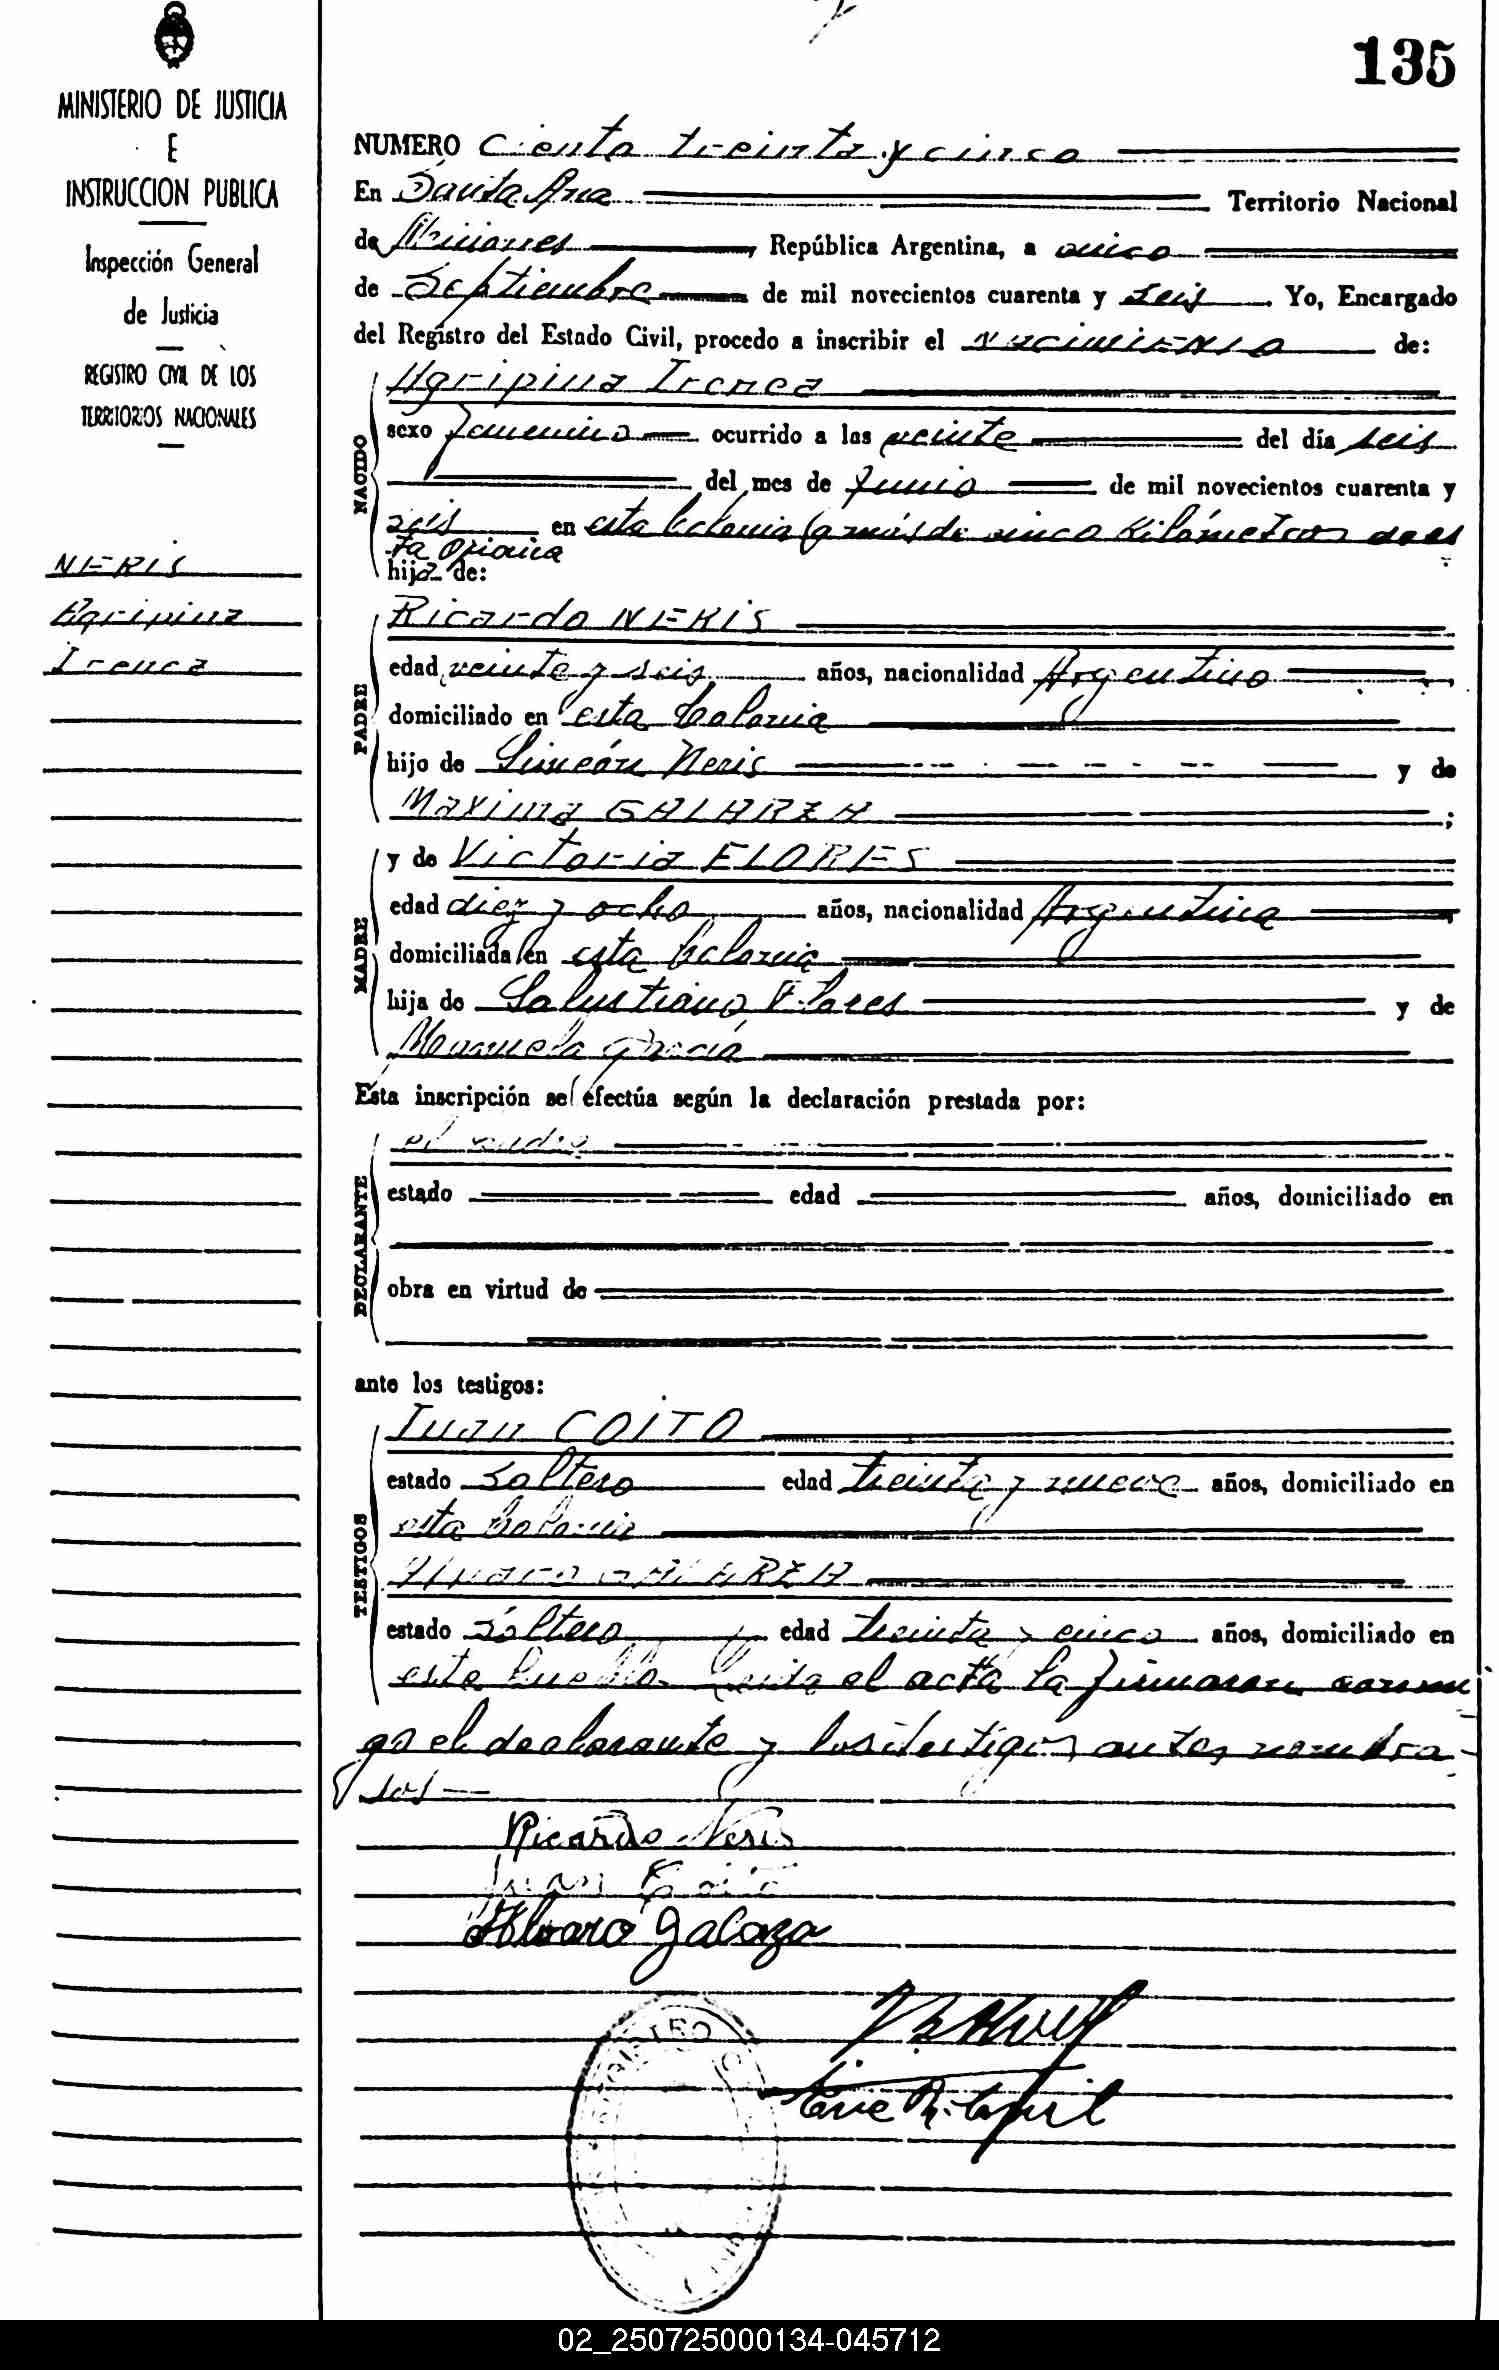 MINISTERIO DE JUSTICIA
E
INSTRUCCION PUBLICA
Inspección General
de Justicia
REGISTRO CIVIL DE LOS
TERRITORIOS NACIONALES
NERIS
Agripina
Irenea
135
NUMERO Ciento treinta y cinco
En Santa Ana Territorio Nacional
de Misiones, República Argentina, a cinco
de Septiembre de mil novecientos cuarenta y seis. Yo, Encargado
del Registro del Estado Civil, procedo a inscribir el nacimiento de:
NACIDO
Agripina Irenea
sexo femenino ocurrido a las veinte del día seis
del mes de Junio de mil novecientos cuarenta y
seis en esta Colonia (a más de cinco kilómetros de es
ta oficina
hija de:
PADRE
Ricardo NERIS
edad veinte y seis años, nacionalidad Argentino
domiciliado en esta Colonia
hijo de Simeón Neris y de
Maxima GALARZA;
MADRE
y de Victoria FLORES
edad diez y ocho años, nacionalidad Argentina
domiciliada en esta Colonia
hija de Salustiano Flores y de
Manuela García
Esta inscripción se efectúa según la declaración prestada por:
DECLARANTE
el padre
estado edad años, domiciliado en
obra en virtud de
ante los testigos:
TESTIGOS
Juan COITO
estado Soltero edad treinta y nueve años, domiciliado en
esta Colonia
Alvaro GALARZA
estado Soltero edad treinta y cinco años, domiciliado en
este Pueblo. Leida el acta la firmaron conmi
go el declarante y los testigos antes nombra
dos
Ricardo Neris
Juan Coito
Alvaro Galarza
REGISTRO
02_250725000134-045712